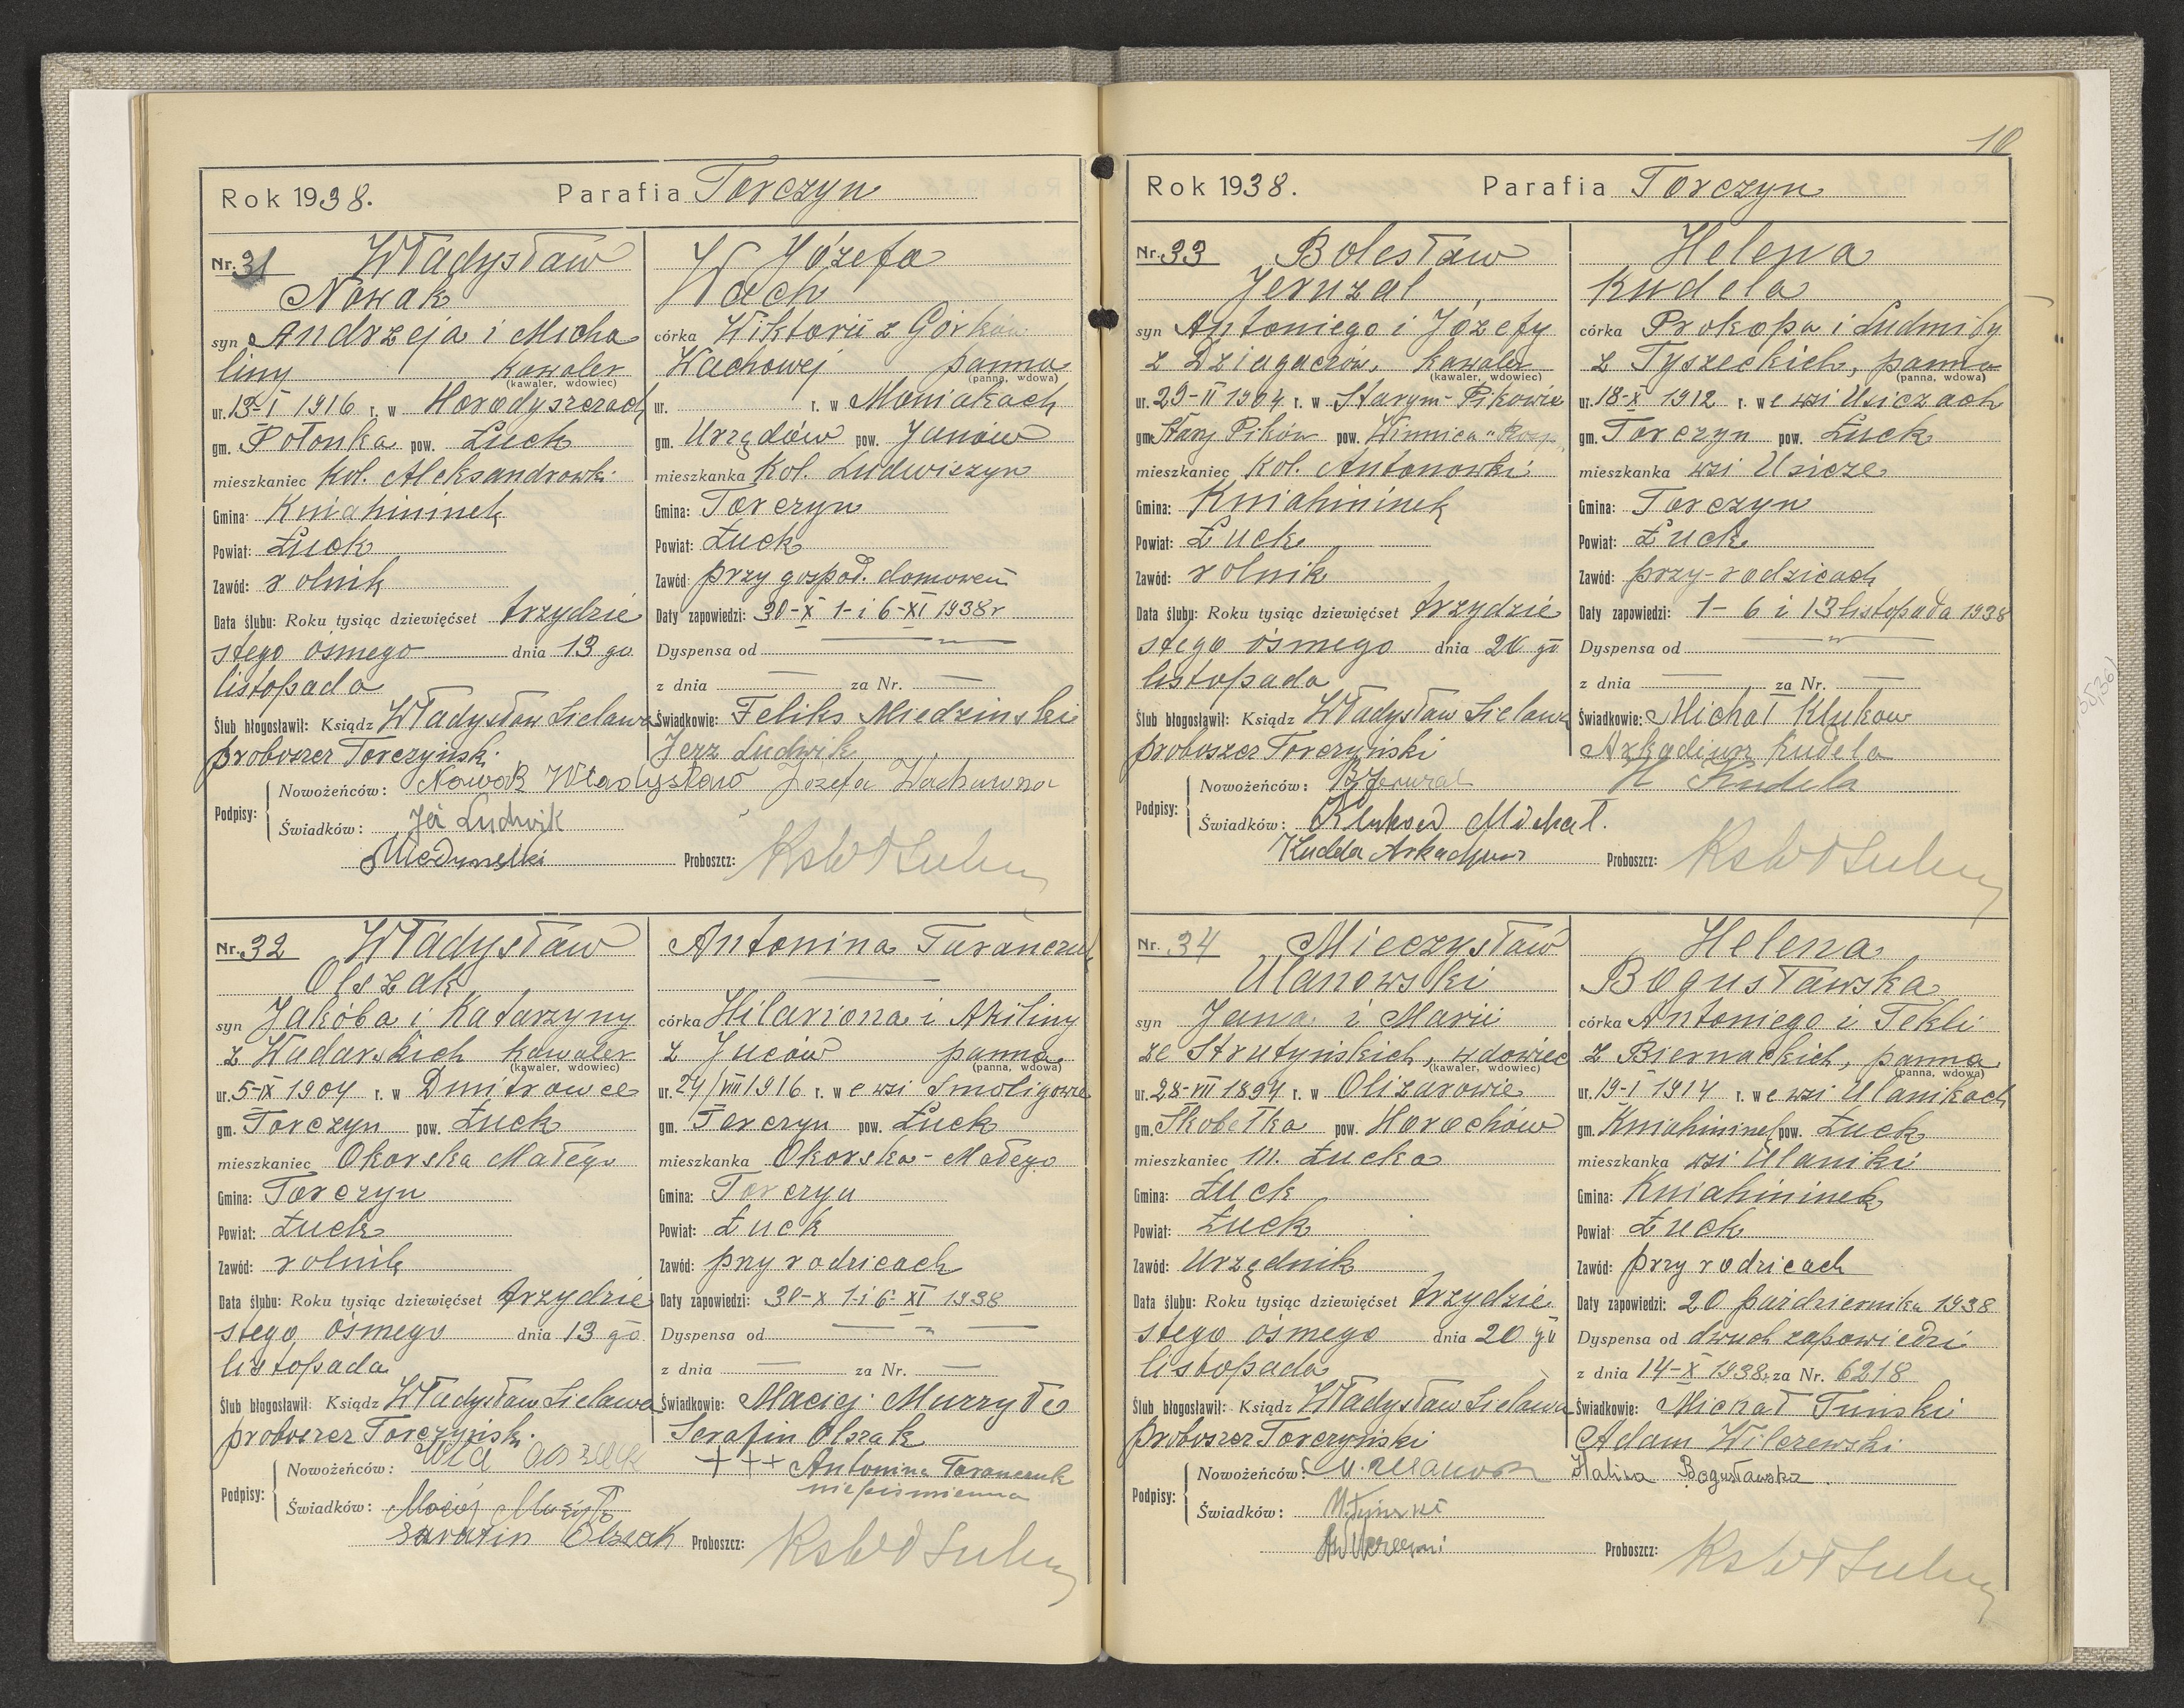 10
Rok 1938. Parafia Torczyn
Nr. 31 Władysław
Nowak
syn Andrzeja i Micha
liny kawaler
(kawaler, wdowiec)
ur. 13-I 1916 r. w Horodyszczach
gm. Połonka pow. Łuck
mieszkaniec Kol. Aleksandrówki
Gmina: Kniahininek
Powiat: Łuck
Zawód: rolnik
Data ślubu: Roku tysiąc dziewięćset trzydzie
stego ósmego dnia 13 go
listopada
Ślub błogosławił: Ksiądz Władysław Sielawa
proboszcz Torczyński
Józefa
Wach
córka Wiktorii z Górków
Wachowej panna
(panna, wdowa)
ur. r. w Moniakach
gm. Urzędów pow. Janów
mieszkanka Kol. Ludwiszyn
Gmina: Torczyn
Powiat: Łuck
Zawód: przy gospod. domowem
Daty zapowiedzi: 30-X 1-i 6-XI 1938 r
Dyspensa od — „ —
z dnia — za Nr. —
Świadkowie: Feliks Miedzinski
Jerz Ludwik
Podpisy: Nowożeńców: Nowak Władysław Józefa Wachówna
Świadków: Jeż Ludwik
Proboszcz:
Nr. 32 Władysław
Olszak
syn Jakóba i Katarzyny
z Wadarskich kawaler
(kawaler, wdowiec)
ur. 5-IX 1904 r. w Dmitrowce
gm. Torczyn pow. Łuck
mieszkaniec Okorska Małego
Gmina: Torczyn
Powiat: Łuck
Zawód: rolnik
Data ślubu: Roku tysiąc dziewięćset trzydzie
stego ósmego dnia 13 go
listopada
Ślub błogosławił: Ksiądz Władysław Sielawa
proboszcz Torczyński
Antonina Tarańczuk
córka Hilariona i Akiliny
z Juców panna
(panna, wdowa)
ur. 24/VIII 1916 r. w e wsi Smoligowie
gm. Torczyn pow. Łuck
mieszkanka Okorska-Małego
Gmina: Torczyn
Powiat: Łuck
Zawód: przy rodzicach
Daty zapowiedzi: 30-X 1-i 6-XI 1938
Dyspensa od — „ —
z dnia — za Nr. —
Świadkowie: Maciej Murzyło
Serafin Olszak
Podpisy: Nowożeńców: +++ Antonina Taranczuk
niepiśmienna
Świadków: Maciej
Olszak Proboszcz:
Rok 1938. Parafia Torczyn
Nr. 33 Bolesław
Jeruzal
syn Antoniego i Józefy
z Dziagaczów, kawaler
(kawaler, wdowiec)
ur. 29-II 1904 r. w Starym-Pikowie
gm. Stary Pików pow. Winnica
mieszkaniec Kol. Antonówki
Gmina: Kniahininek
Powiat: Łuck
Zawód: rolnik
Data ślubu: Roku tysiąc dziewięćset trzydzie
stego ósmego dnia 20 go
listopada
Ślub błogosławił: Ksiądz Władysław Sielawa
proboszcz Torczyński
Helena
Kudela
córka Prokopa i Ludmiły
z Tyszeckich, panna
(panna, wdowa)
ur. 18-X 1912 r. w e wsi Usiczach
gm. Torczyn pow. Łuck
mieszkanka wsi Usicze
Gmina: Torczyn
Powiat: Łuck
Zawód: przy-rodzicach
Daty zapowiedzi: 1- 6 i 13 listopada 1938
Dyspensa od — „ —
z dnia — za Nr. —
Świadkowie: Michał Klukow
Arkadiusz Kudela
Podpisy: Nowożeńców: B Jeruzal H Kudela
Świadków: Klukow Michał.
Kudela Proboszcz:
Nr. 34 Mieczysław
Ulanowski
syn Jana i Marii
ze Strutyńskich, wdowiec
(kawaler, wdowiec)
ur. 28-VII 1894 r. w Olizarowie
gm. Skobełka pow. Horochów
mieszkaniec m. Łucka
Gmina: Łuck
Powiat: Łuck
Zawód: urzędnik
Data ślubu: Roku tysiąc dziewięćset trzydzie
stego ósmego dnia 20 go
listopada
Ślub błogosławił: Ksiądz Władysław Sielawa
proboszcz Torczyński
Helena
Bogusławska
córka Antoniego i Tekli
z Biernackich, panna
(panna, wdowa)
ur. 19-I 1914 r. w e wsi Ulanikach
gm. Kniahininek pow. Łuck
mieszkanka wsi Ulaniki
Gmina: Kniahininek
Powiat: Łuck
Zawód: przy rodzicach
Daty zapowiedzi: 20 października 1938
Dyspensa od dwuch zapowiedzi
z dnia 14-X 1938, za Nr. 6218
Świadkowie: Michał Tunski
Adam Wilczewski
Podpisy: Nowożeńców: Halina Bogusławska.
Świadków:
Proboszcz: